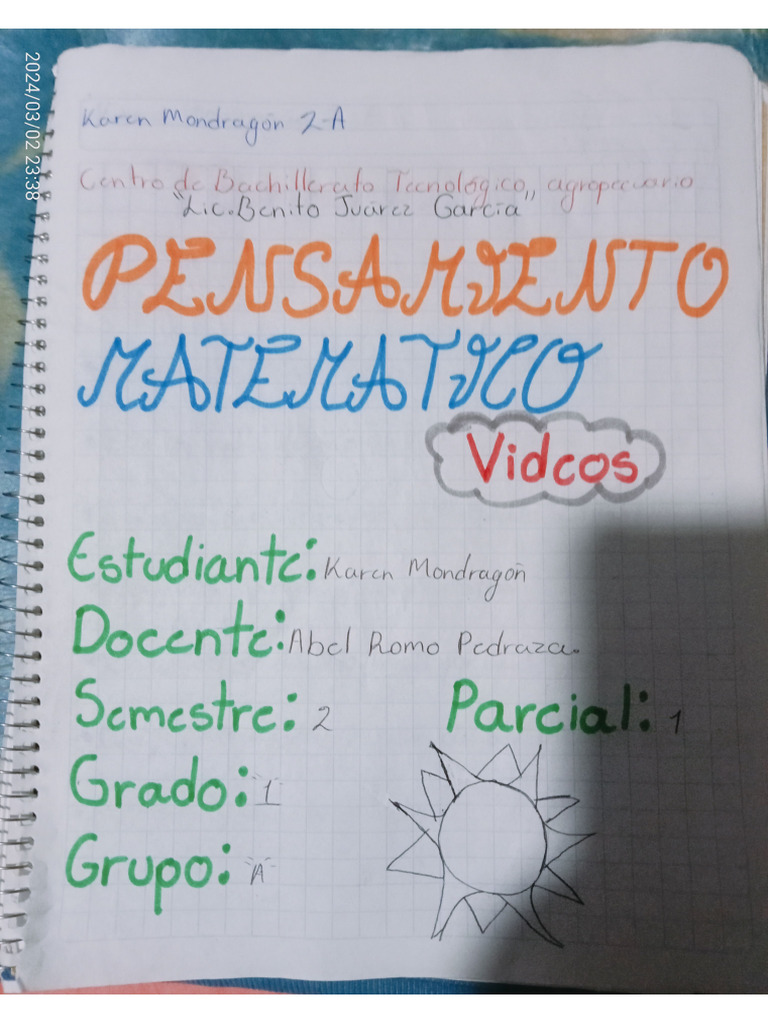 2024/03/02 23:38
Karen Mondragón 2-A
Centro de Bachillerato Tecnológico, agropecuario
"Lic. Benito Juárez García"
PENSAMIENTO
MATEMATICO
Videos
Estudiante: Karen Mondragón
Docente: Abel Romo Pedraza.
Semestre: 2 Parcial: 1
Grado: 1
Grupo: "A"